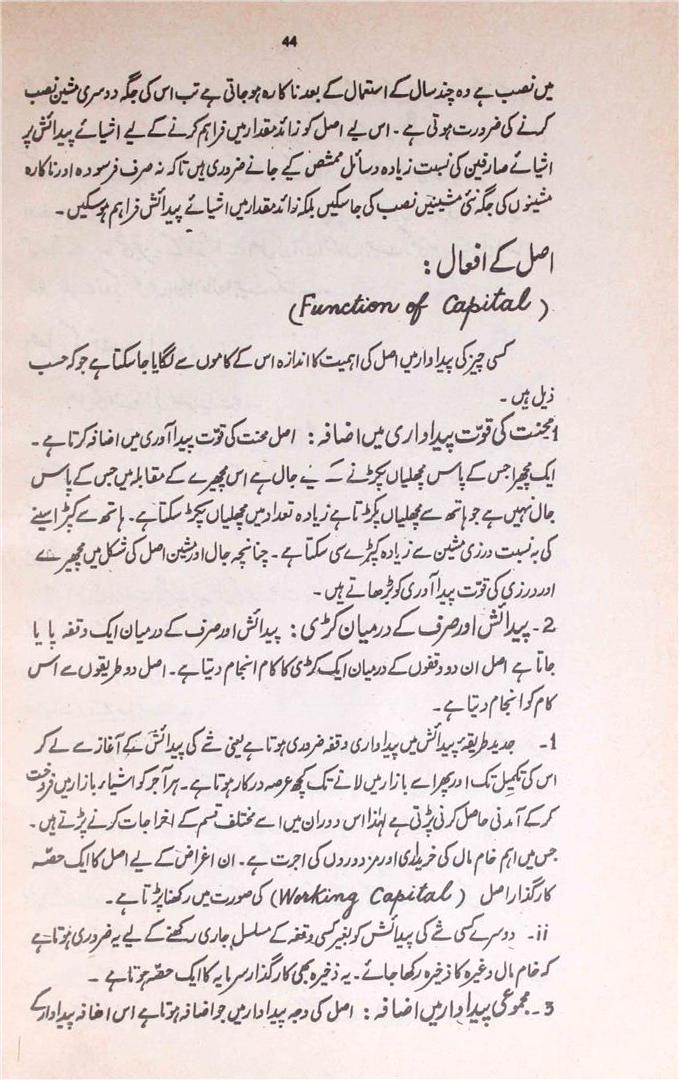 44
میں نصب ہے وہ چند سال کے استمال کے بعد ناکارہ ہو جاتی ہے تب اس کی جگہ دوسری مشین نصب
کرنے کی ضرورت ہوتی ہے ۔ اس لیے اصل کو زائد مقدار میں فراہم کرنے کے لیے اشیائے پیدائش پر
اشیائے صارفین کی نسبت زیادہ وسائل مختص کیے جانے ضروری ہیں تاکہ نہ صرف فرسودہ اور ناکارہ
مشینوں کی جگہ نئی مشینیں نصب کی جاسکیں بلکہ زائد مقدار میں اشیائے پیدائش فراہم ہوسکیں ۔
اصل کے افعال :
(Function of Capital)
کسی چیز کی پیداوار میں اصل کی اہمیت کا اندازہ اس کے کاموں سے لگایا جاسکتا ہے جو کہ حسب
ذیل ہیں ۔
1۔ محنت کی قوت پیداواری میں اضافہ : اصل محنت کی قوت پیدا آوری میں اضافہ کرتا ہے ۔
ایک مچھیرا جس کے پاس مچھلیاں پکڑنے کے لیے جال ہے اس مچھیرے کے مقابلہ میں جس کے پاس
جال نہیں ہے جو ہاتھ سے مچھلیاں پکڑتا ہے زیادہ تعداد میں مچھلیاں پکڑ سکتا ہے ۔ ہاتھ سے کپڑا سینے
کی بہ نسبت درزی مشین سے زیادہ کپڑے سی سکتا ہے ۔ چنانچہ جال اور مشین اصل کی شکل میں مچھیرے
اور درزی کی قوت پیدا آوری کو بڑھاتے ہیں ۔
2۔ پیدائش اور صرف کے درمیان کڑی : پیدائش اور صرف کے درمیان ایک وقفہ پایا
جاتا ہے اصل ان دو وقفوں کے درمیان ایک کڑی کا کام انجام دیتا ہے ۔ اصل دو طریقوں سے اس
کام کو انجام دیتا ہے ۔
1۔ جدید طریقۂ پیدائش میں پیداواری وقفہ ضروری ہوتا ہے یعنی شے کی پیدائش کے آغاز سے لے کر
اس کی تکمیل تک اور پھر اسے بازار میں لانے تک کچھ عرصہ درکار ہوتا ہے ۔ ہر آجر کو اشیاء بازار میں فروخت
کرکے آمدنی حاصل کرنی پڑتی ہے لہٰذا اس دوران میں اسے مختلف قسم کے اخراجات کرنے پڑتے ہیں ۔
جس میں اہم خام مال کی خریداری اور مزدوروں کی اجرت ہے ۔ ان اغراض کے لیے اصل کا ایک حصّہ
کارگذار اصل (Working Capital) کی صورت میں رکھنا پڑتا ہے ۔
ii۔ دوسرے کسی شے کی پیدائش کو بغیر کسی وقفہ کے مسلسل جاری رکھنے کے لیے یہ ضروری ہوتا ہے
کہ خام مال وغیرہ کا ذخیرہ رکھا جائے ۔ یہ ذخیرہ بھی کارگذار سرمایہ کا ایک حصّہ ہوتا ہے ۔
3۔ مجموعی پیداوار میں اضافہ : اصل کی وجہ پیداوار میں جو اضافہ ہوتا ہے اس اضافہ پیداوار کے